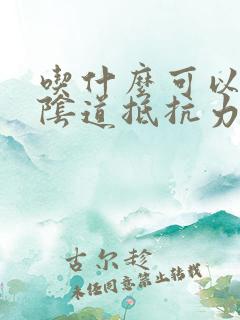 喫什麼可以
陰道抵抗力
古尔趁
未经同意禁止转载